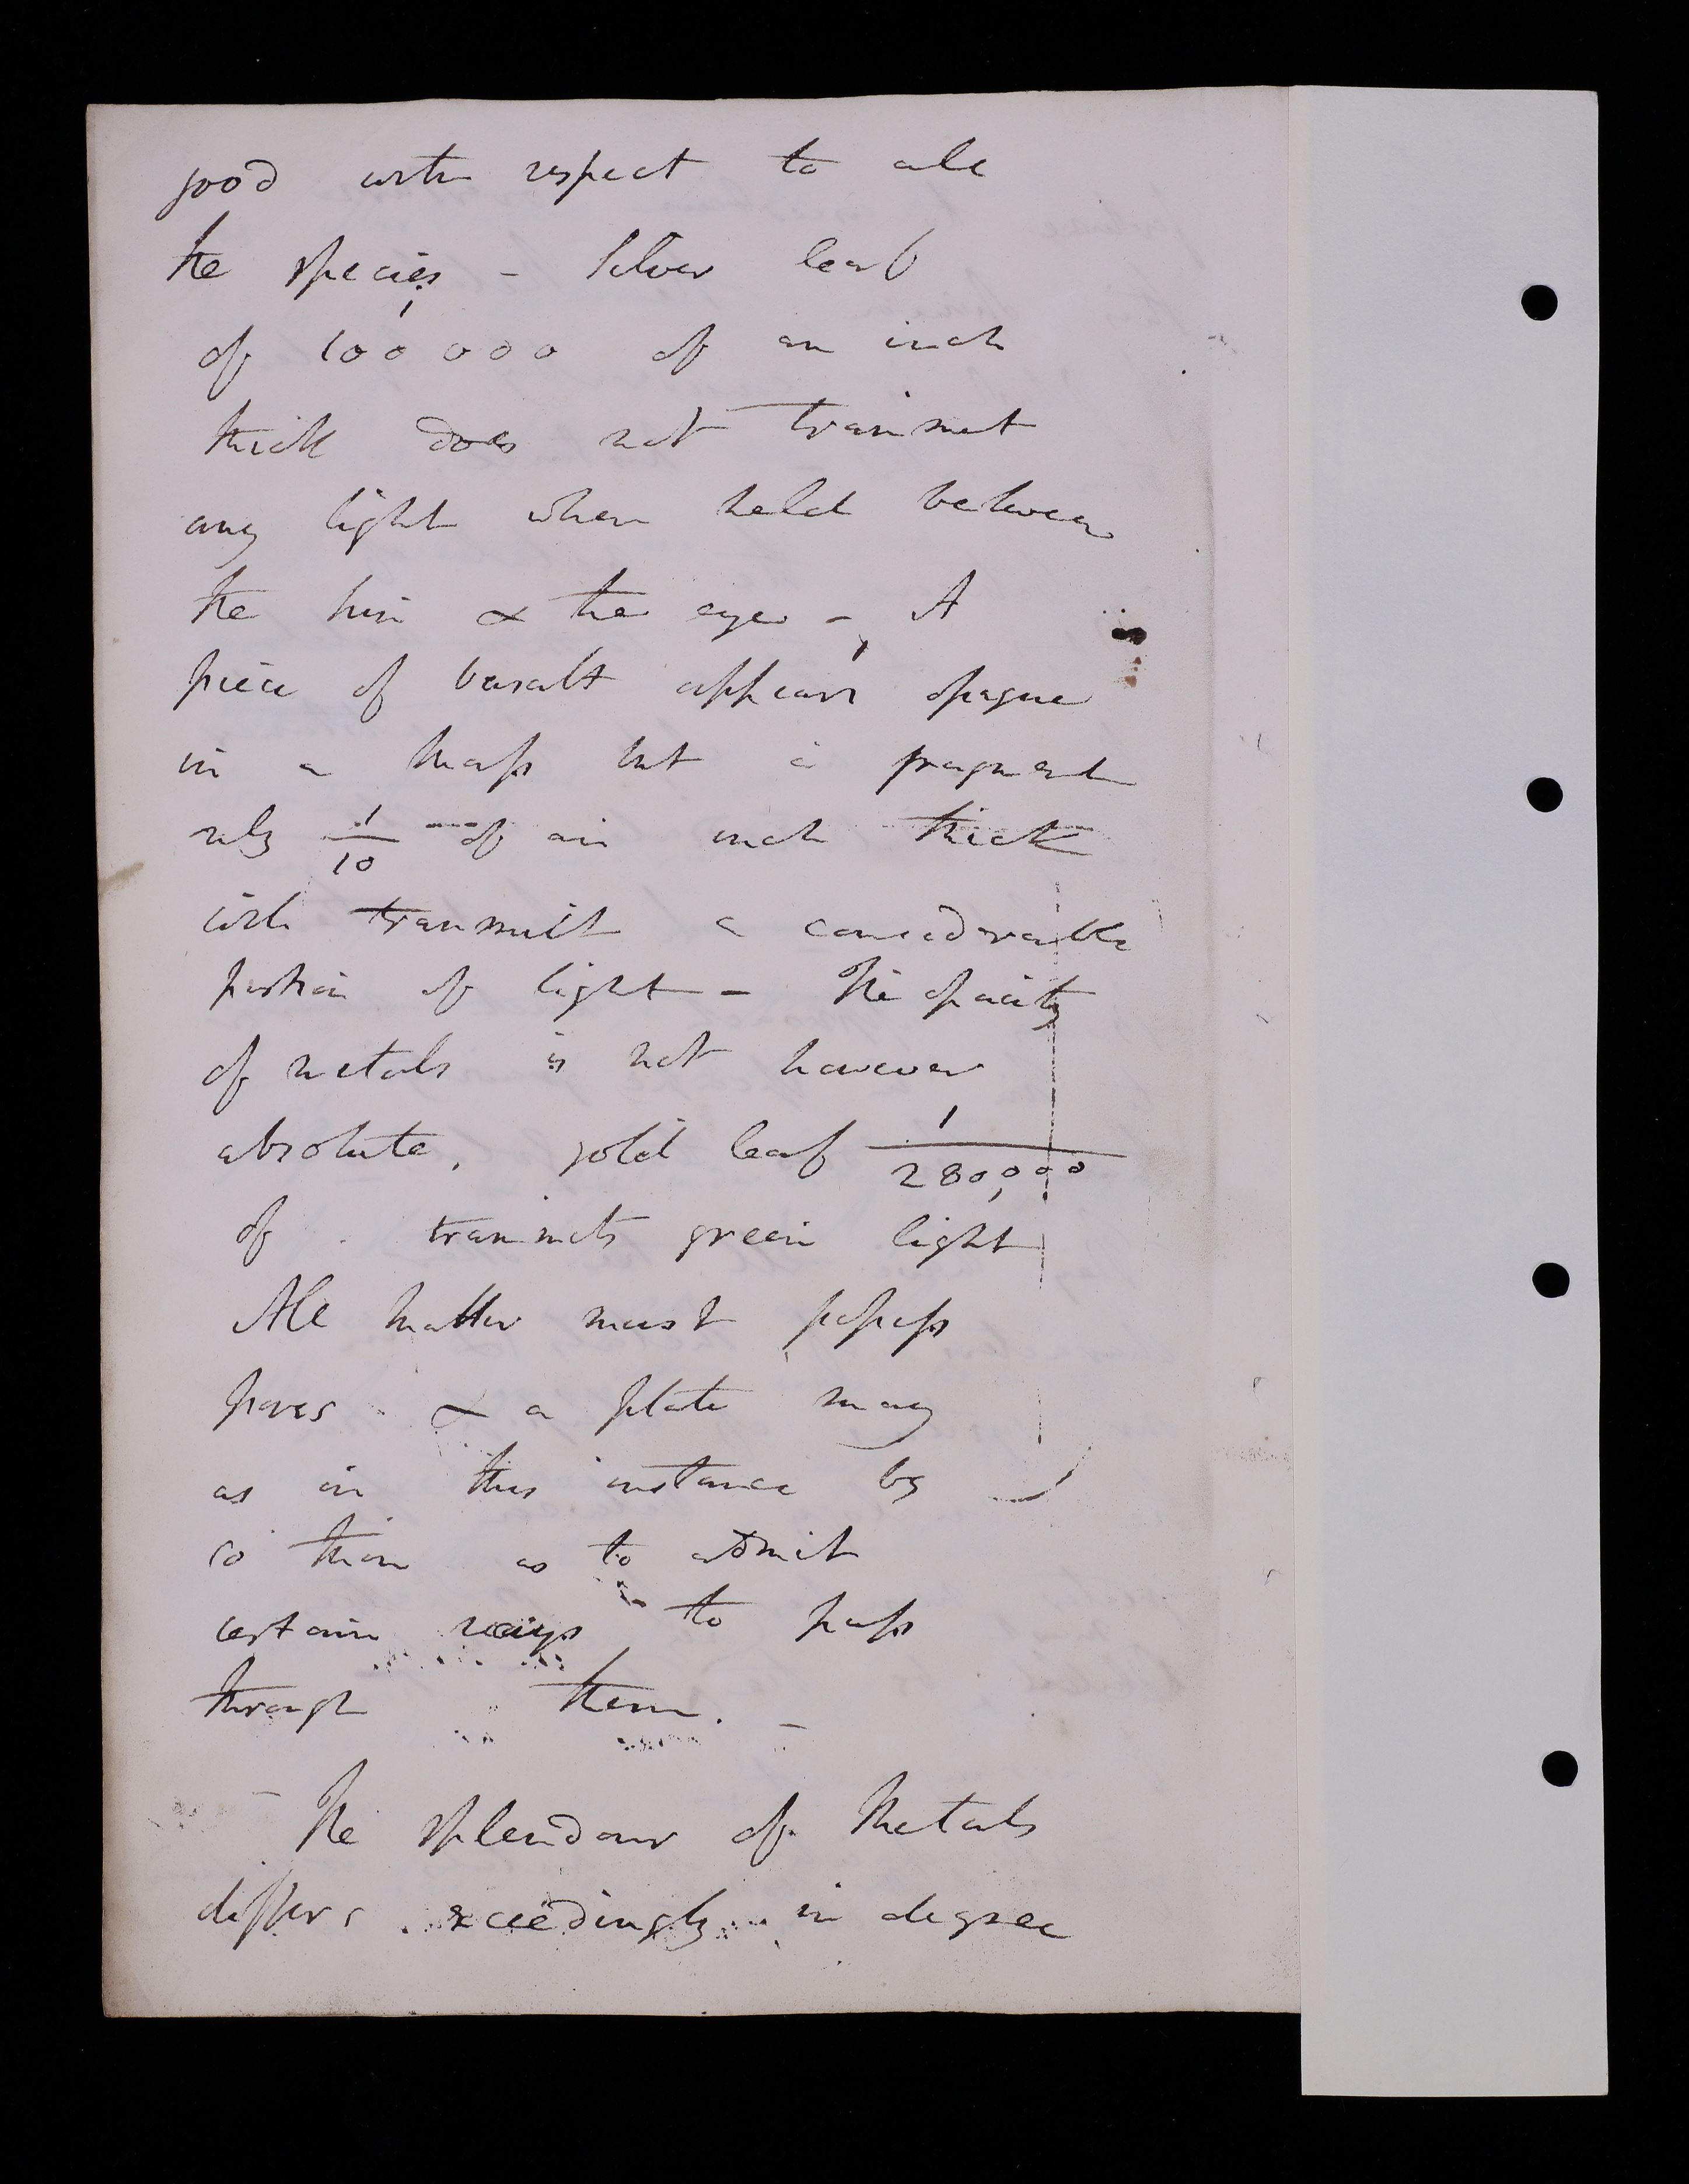 good with respect to all
the species - Silver leaf
of 1/100000 of an inch
thick does not transmit
any light when held between
the sun & the eye - A
piece of basalt appears opaque
in a mass but a fragment
only 1/10 of an inch thick
will transmit a considerable
portion of light - The opacity
of metals is not however
absolute. gold leaf 1/280,000
of transmits green light
All matter must possess
pores & a plate may
as in this instance be
so thin as to admit
certain rays to pass
through them. -
- The splendour of Metals
differs exceedingly in degree